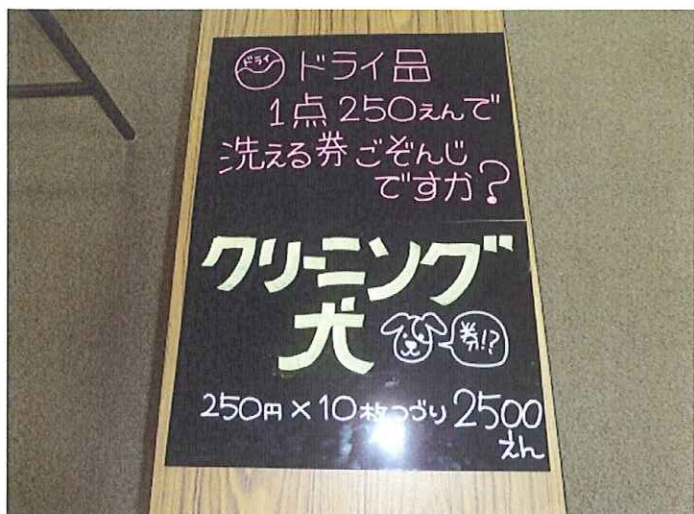 ドライ ドライ品
1点250えんで
洗える券ごぞんじ
ですか?
クリーニング
犬 券!?
250円×10枚つづり2500
えん